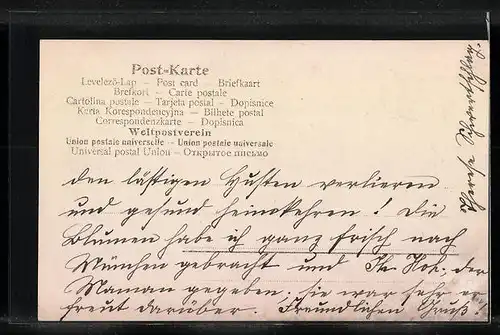 Post-Karte
Levelező-Lap – Post card – Briefkaart
Brefkort – Carte postale
Cartolina postale – Tarjeta postal – Dopisnice
Karta Korespondencyjna – Bilhete postal
Correspondenzkarte – Dopisnica
Weltpostverein
Union postale universelle – Union postale universale
Universal postal Union – Открытое письмо
den lästigen Husten verlieren
und gesund heimkehren! Die
Blumen habe ich ganz frisch nach
München gebracht und der
Maman gegeben; sie war sehr er
freut darüber. Freundlichen Gruß!